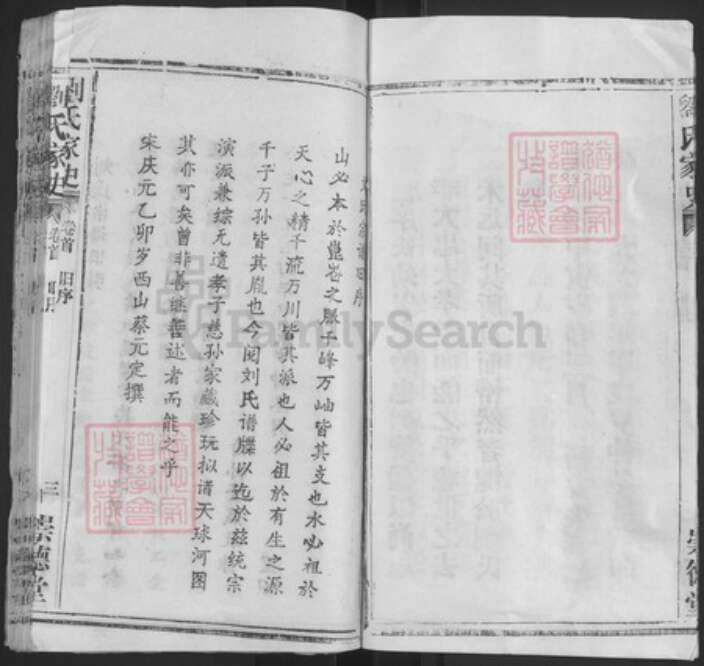 劉氏家史
崇德堂
刘氏宗谱旧序
山必本於崑崙之脈千峰万岫皆其支也水必祖於
天心之精千流万川皆其派也人必祖於有生之源
千子万孙皆其胤也今阅刘氏谱牒以迄於兹统宗
演派兼综无遗孝子慈孙家藏珍玩拟诸天球河图
其亦可矣曾非善继善述者而能之乎
宋庆元乙卯岁西山蔡元定撰
劉氏家史
卷首
旧序
三
崇德堂
FamilySearch